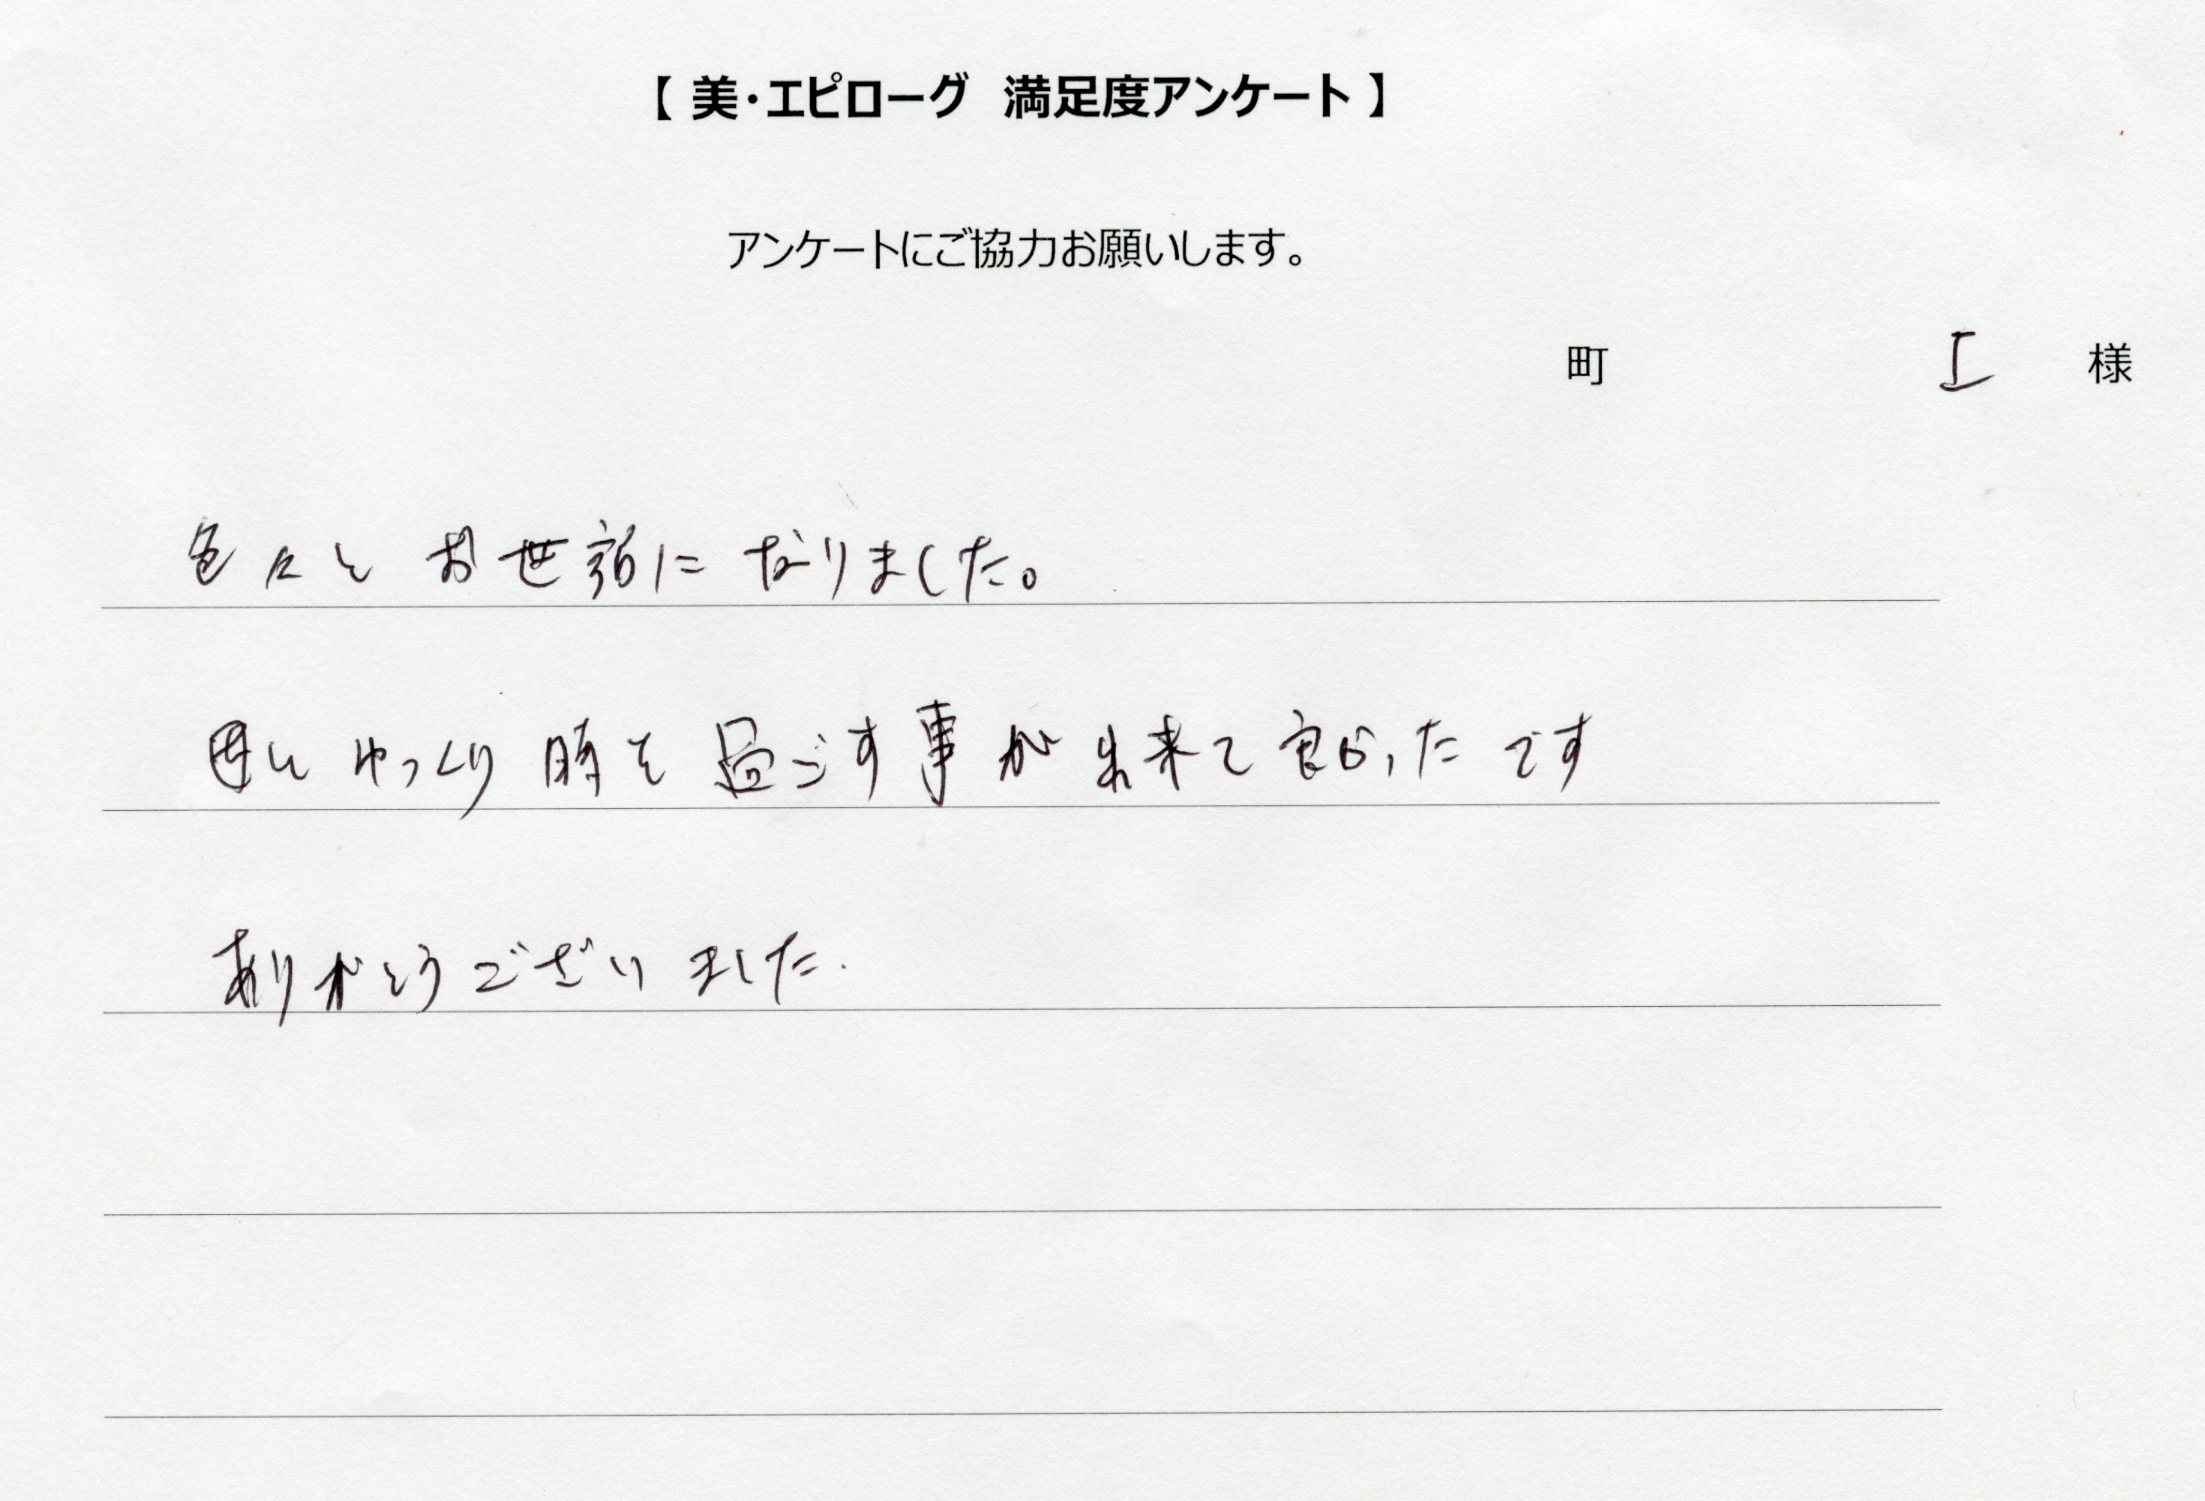 【 美・エピローグ 満足度アンケート 】
アンケートにご協力お願いします。
町 I 様
色々とお世話になりました。
母とゆっくり時を過ごす事が出来て良かったです
ありがとうございました.